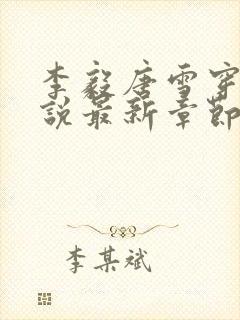 李毅唐雪穿
说最新章节
李某斌